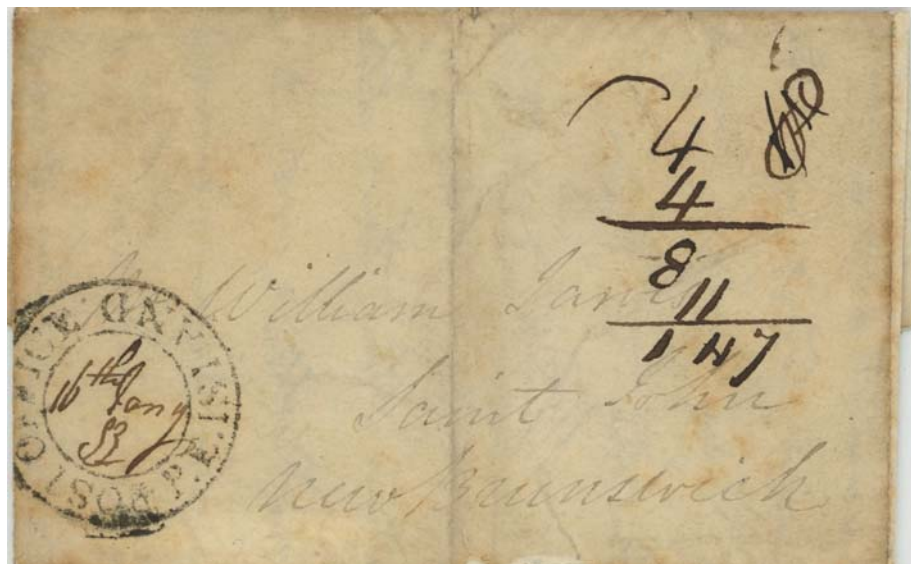 4
4
8
11
1 "7
William Jarvis
Saint John
New Brunswick
POST OFFICE P.E. ISLAND
16th Jany
33